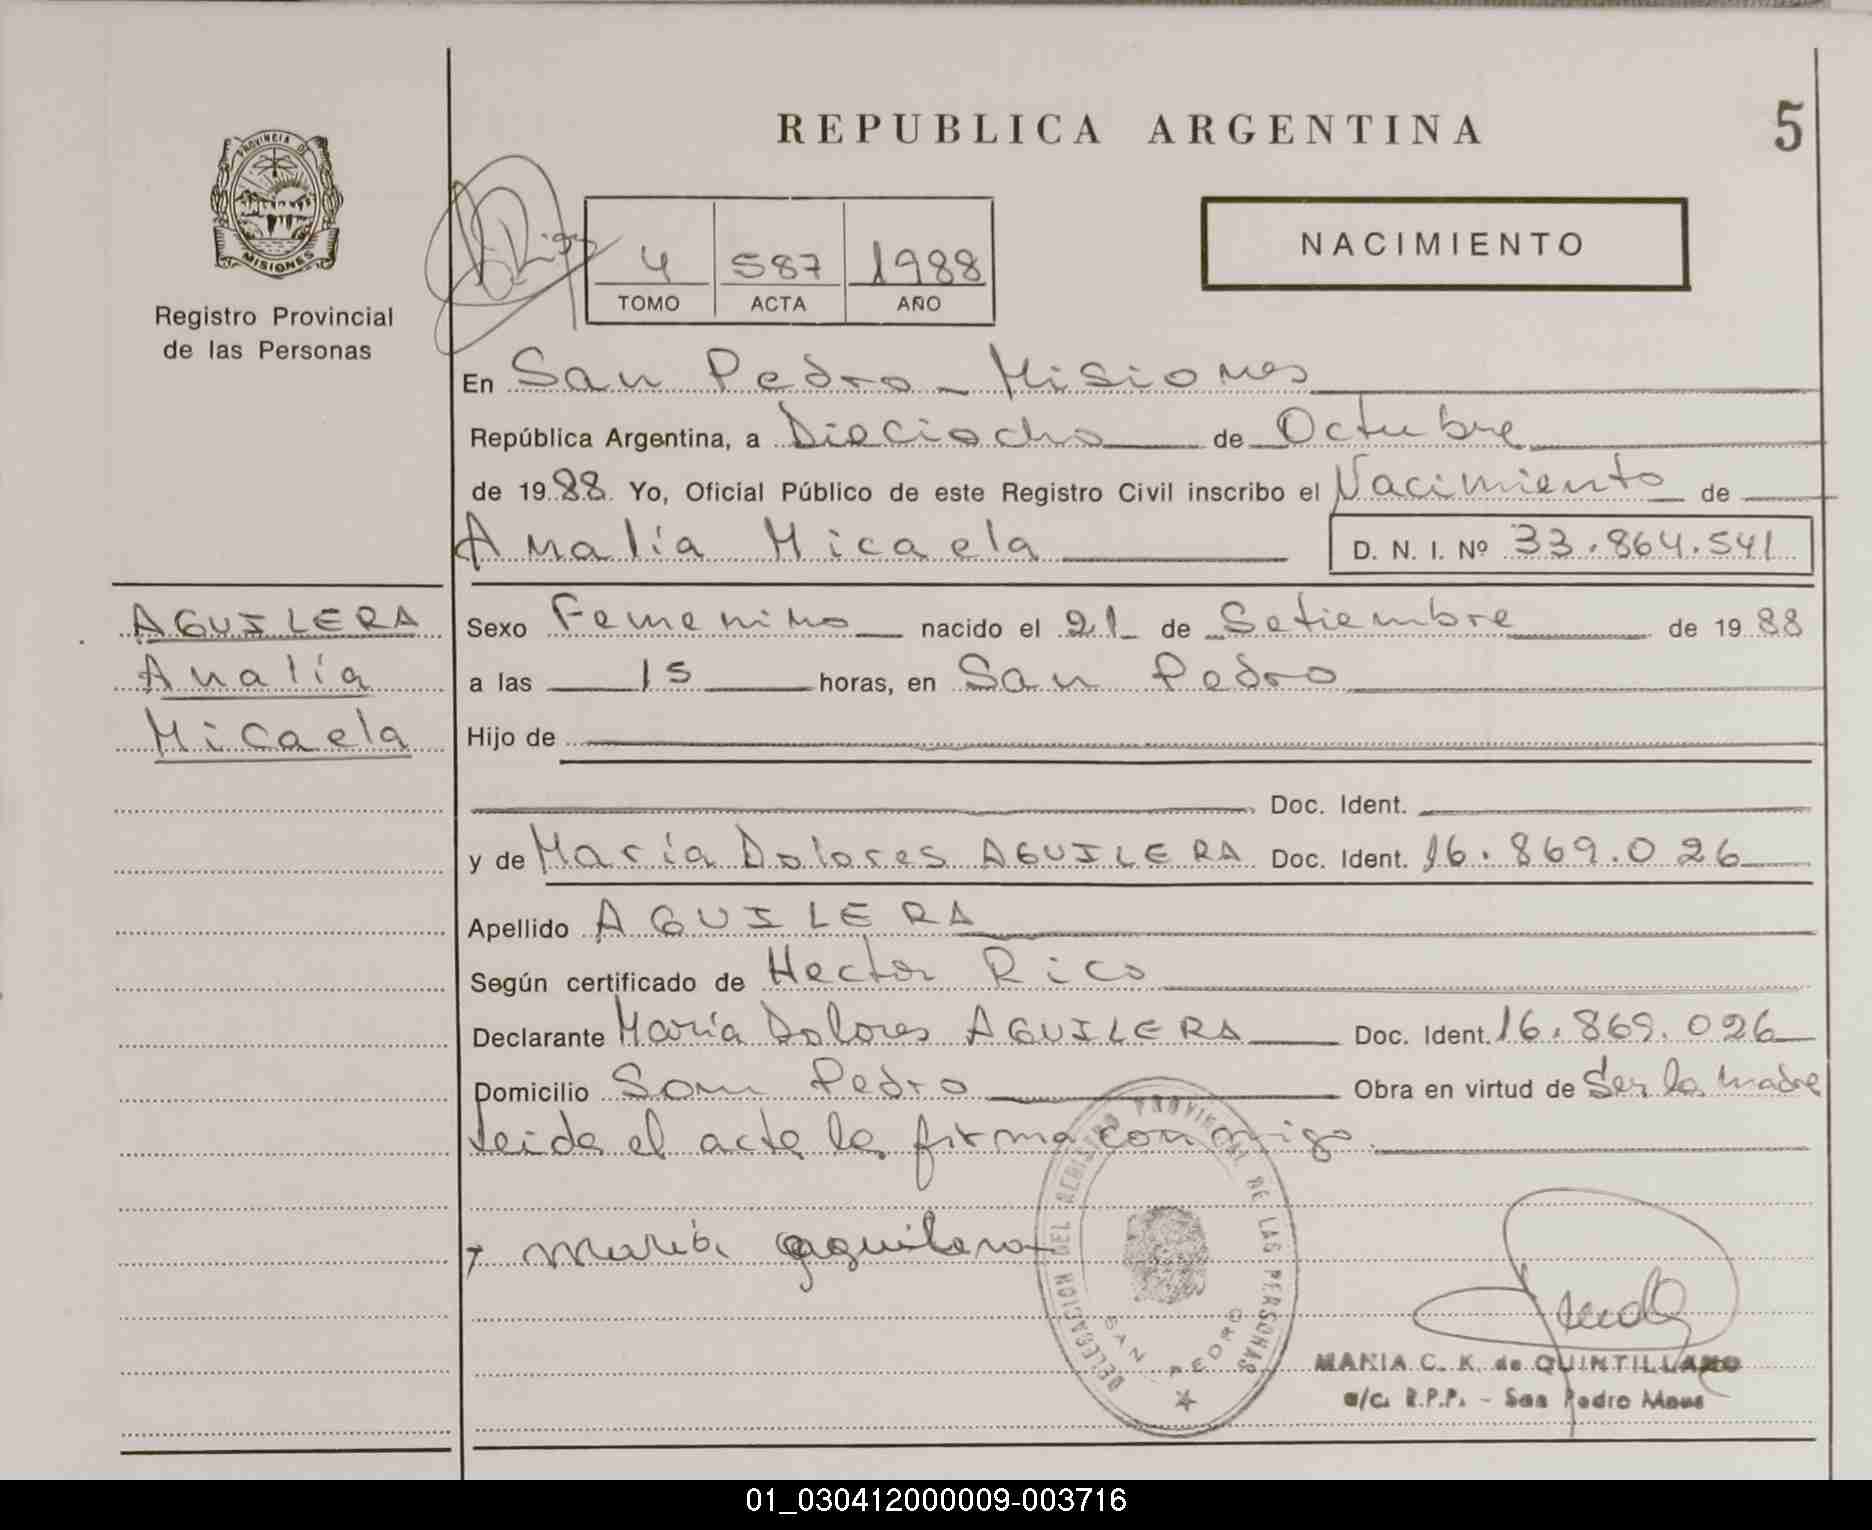 REPUBLICA ARGENTINA
5
PROVINCIA DE
MISIONES
Registro Provincial
de las Personas
NACIMIENTO
4 587 1988
TOMO ACTA AÑO
En San Pedro - Misiones
República Argentina, a Dieciocho de Octubre
de 1988 Yo, Oficial Público de este Registro Civil inscribo el Nacimiento de
Analía Micaela D. N. I. Nº 33.864.541
AGUILERA
Analía
Micaela
Sexo Femenino nacido el 21 de Setiembre de 1988
a las 15 horas, en San Pedro
Hijo de
Doc. Ident.
y de María Dolores AGUILERA Doc. Ident. 16.869.026
Apellido AGUILERA
Según certificado de Hector Rico
Declarante María Dolores AGUILERA Doc. Ident. 16.869.026
Domicilio San Pedro Obra en virtud de Ser la madre
Leida el acta la firma conmigo.
María aguilera
DELEGACION DEL REGISTRO PROVINCIAL DE LAS PERSONAS
SAN PEDRO
MARIA C. K. de QUINTILLANO
a/c. R.P.P. - San Pedro Mnes
01_030412000009-003716